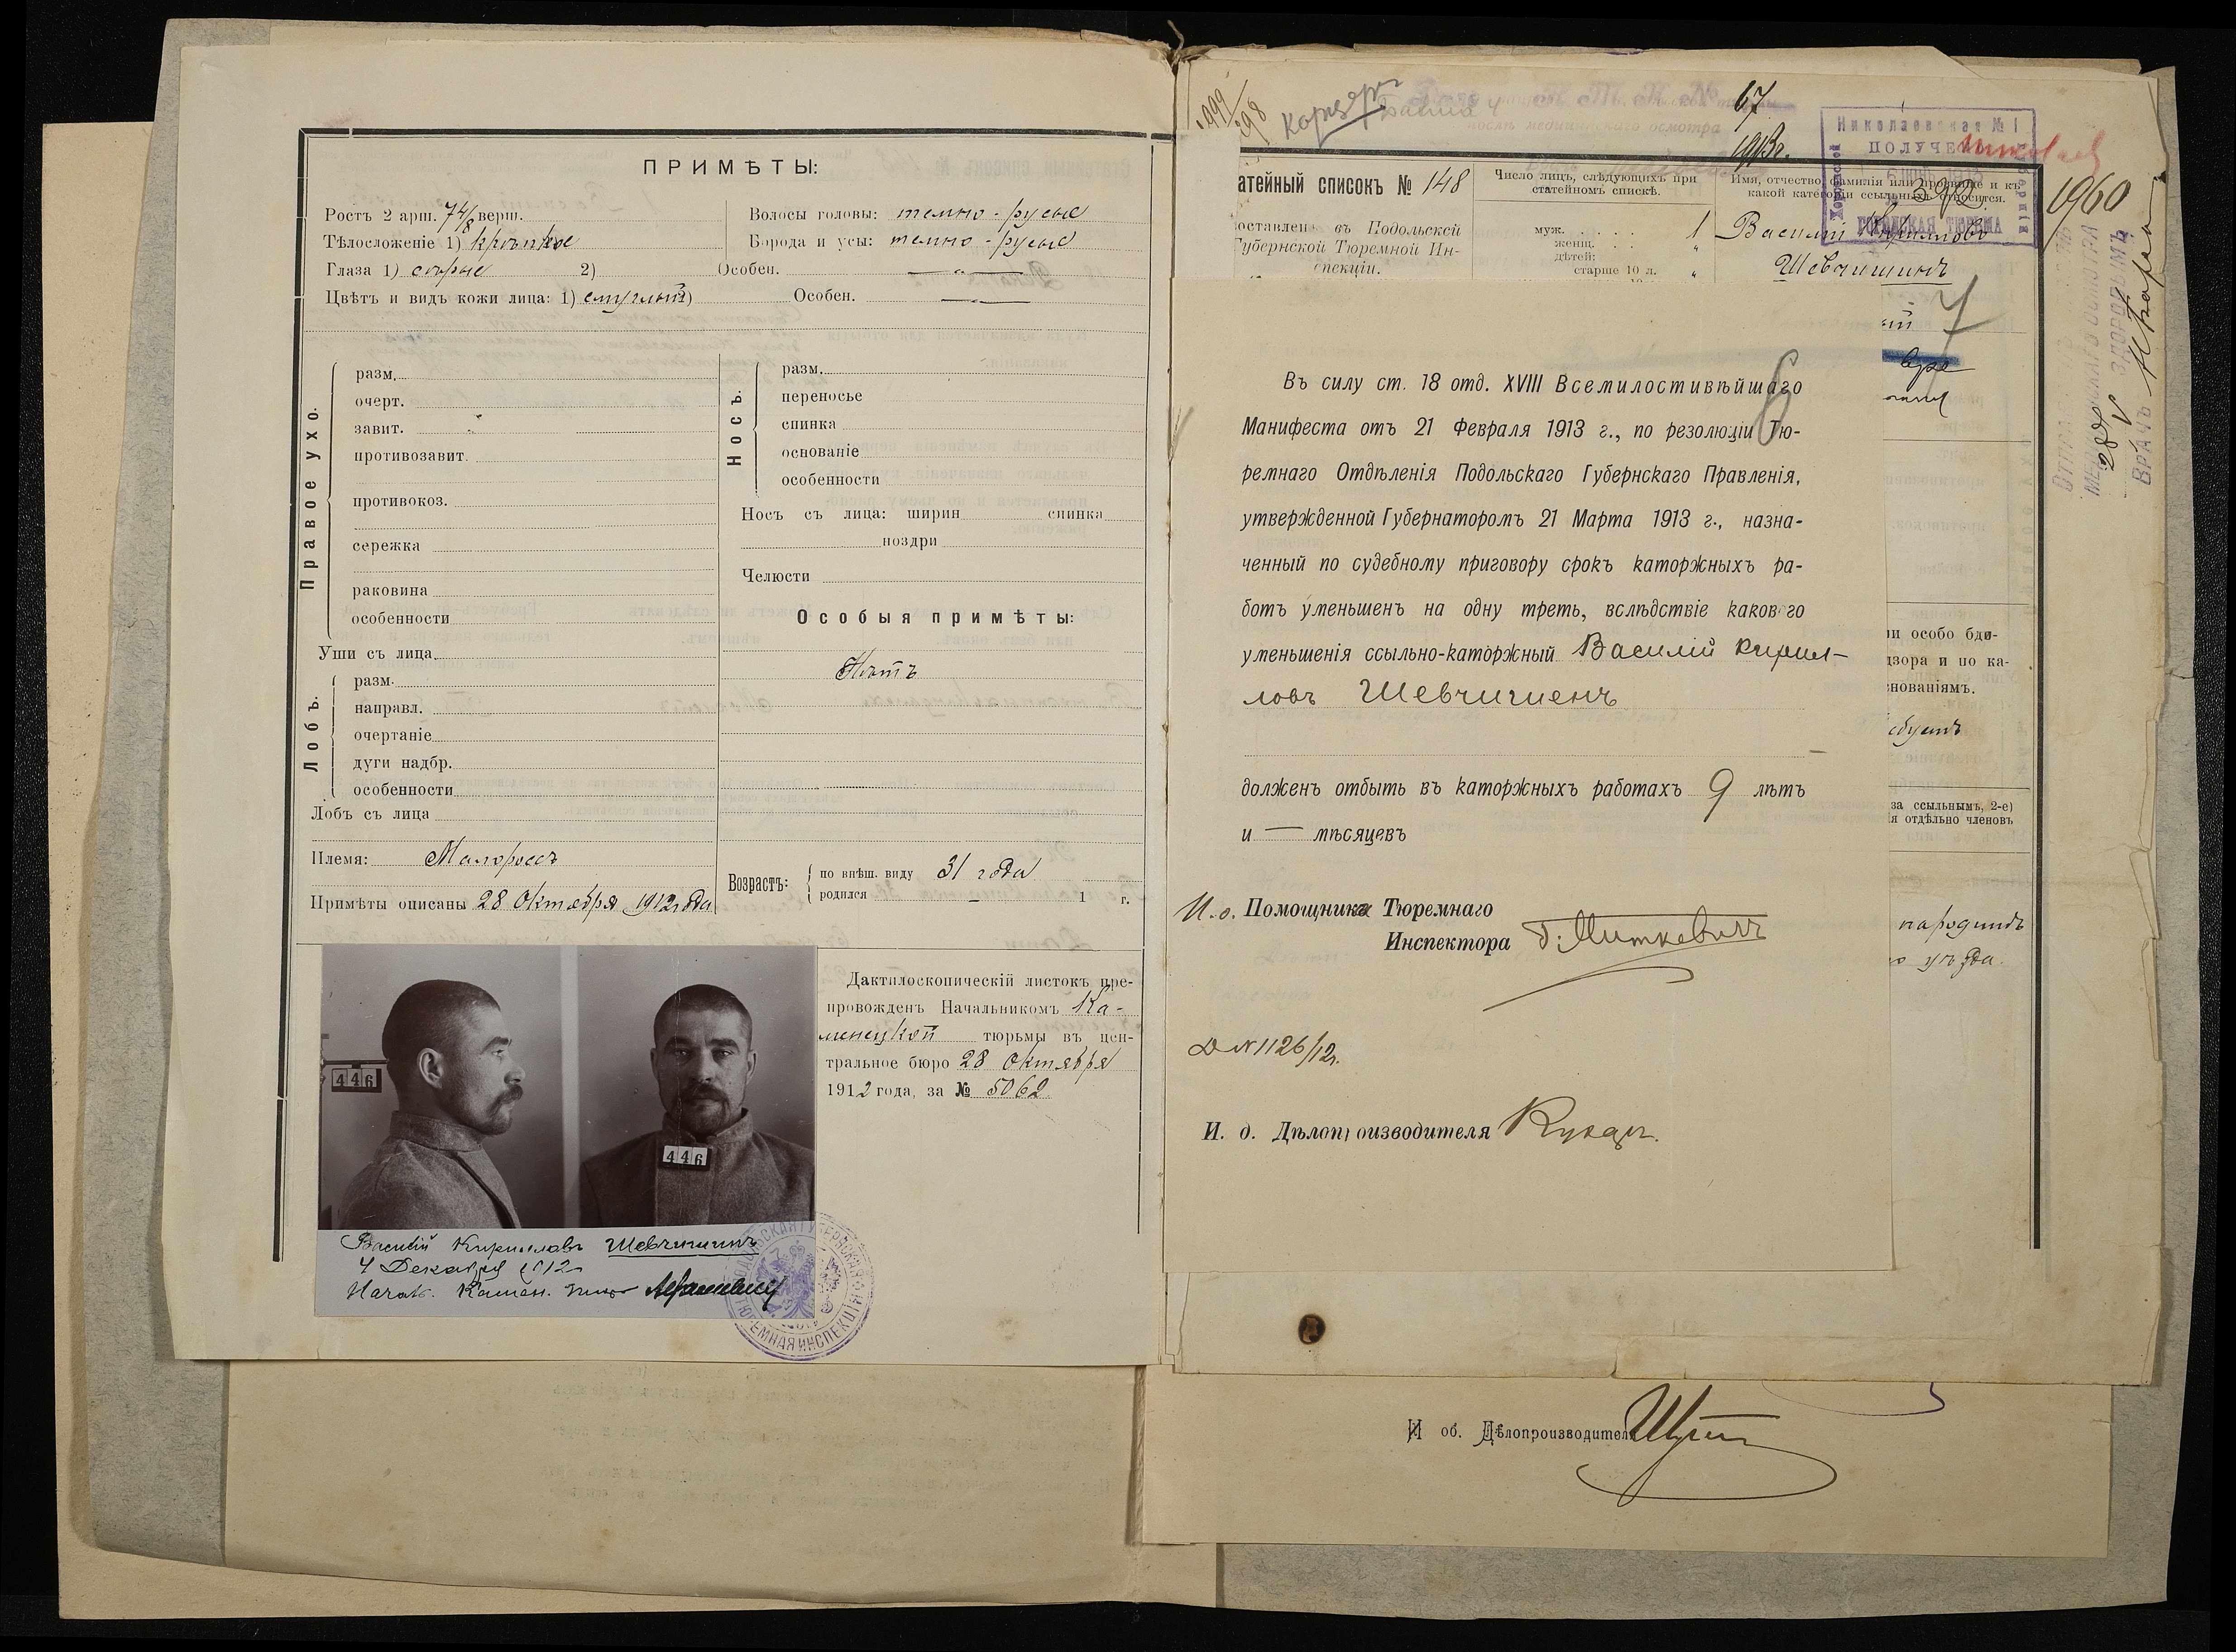 ПРИМѢТЫ:
Ростъ 2 арш. 7 4/8 верш.
Волосы головы: темно-русые
Тѣлосложеніе 1) крѣпкое
Борода и усы: темно-русые
Глаза 1) сѣрые 2) Особен. — " —
Цвѣтъ и видъ кожи лица: 1) смуглый 2) Особен. —
Правое ухо.
разм.
очерт.
завит.
противозавит.
противокоз.
сережка
раковина
особенности
Уши съ лица
Лобъ.
разм.
направл.
очертаніе
дуги надбр.
особенности
Лобъ съ лица
Племя: Малороссъ
Примѣты описаны 28 Октября 1912 года
Носъ.
разм.
переносье
спинка
основаніе
особенности
Носъ съ лица: ширин спинка
ноздри
Челюсти
Особыя примѣты:
Нѣтъ
Возрастъ:
по внѣш. виду 31 года
родился — 1 г.
446
446
Дактилоскопическій листокъ пре-
провожденъ Начальникомъ Ка-
менецкой тюрьмы въ цен-
тральное бюро 28 Октября
1912 года, за № 5062
Василій Кирилловъ Шевчишинъ
4 Декабря 1912
Начал. Камен.
ТЮРЕМНАЯ ИНСПЕКЦІЯ
67
1913 г.
Николаевская № 1
ПОЛУЧЕ
ГОРОДСКАЯ ТЮРЬМА
Николаев
392
1960
атейный списокъ № 148
Число лицъ, слѣдующихъ при
статейномъ спискѣ.
Имя, отчество, фамилія или прозвище и къ
какой категоріи ссыльныхъ относится.
оставленъ въ Подольской
Губернской Тюремной Ин-
спекціи.
муж. 1
женщ. "
дѣтей:
старше 10 л. "
Василій Кирилловъ
Шевчишинъ
7
6
Въ силу ст. 18 отд. XVIII Всемилостивѣйшаго
Манифеста отъ 21 Февраля 1913 г., по резолюціи Тю-
ремнаго Отдѣленія Подольскаго Губернскаго Правленія,
утвержденной Губернаторомъ 21 Марта 1913 г., назна-
ченный по судебному приговору срокъ каторжныхъ ра-
ботъ уменьшенъ на одну треть, вслѣдствіе каковаго
уменьшенія ссыльно-каторжный Василій Кирил-
ловъ Шевчишенъ
долженъ отбыть въ каторжныхъ работахъ 9 лѣтъ
и — мѣсяцевъ
И. о. Помощника Тюремнаго
Инспектора Г. Миткевичъ
Д № 1126/12 г.
И. д. Дѣлопроизводителя
и особо бди-
дзора и по ка-
нованіямъ.
за ссыльнымъ, 2-е)
я отдѣльно членовъ
уѣзда.
ВРАЧЪ
И об. Дѣлопроизводителя